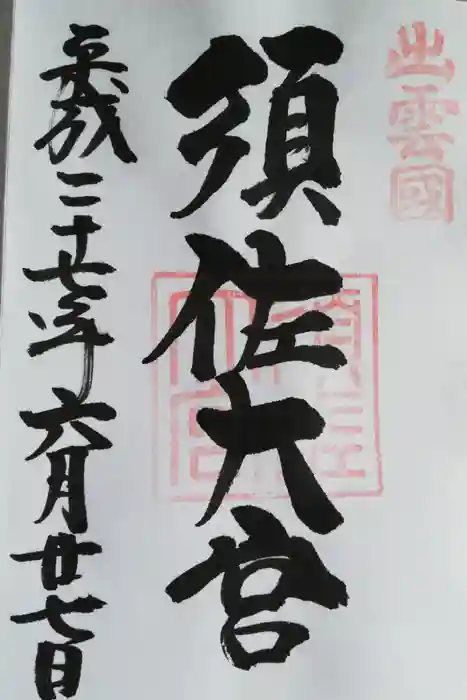 出雲國
須佐大宮
平成二十七年六月廿七日